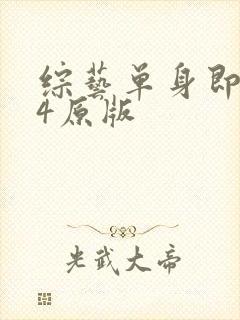 综藝单身即
4原版
光武大帝